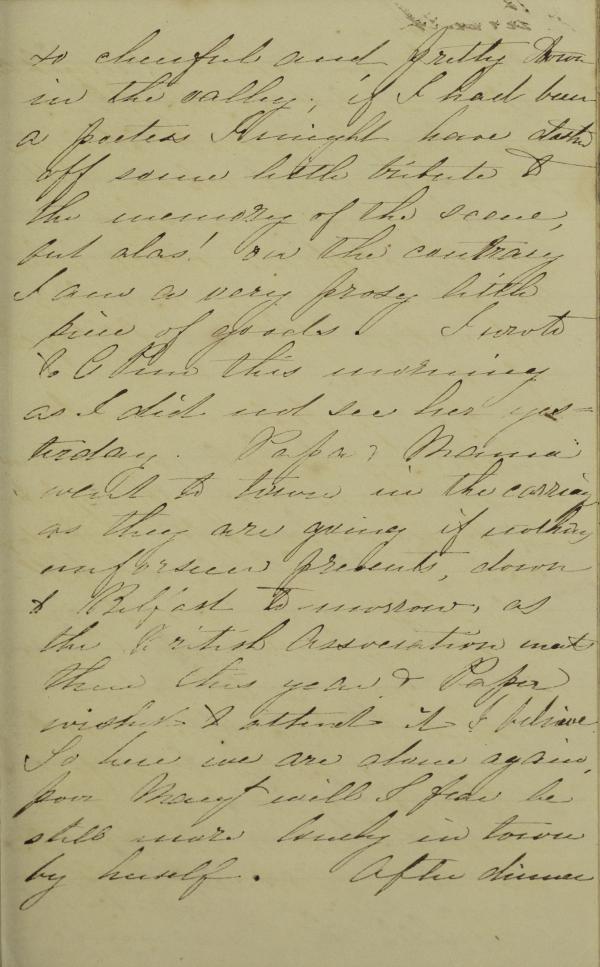 so cheerful and pretty down
in the valley; if I had been
a poetess I might have dashed
off some little tribute to
the memory of the scene,
but alas! on the contrary
I am a very prosy little
piece of goods. I wrote
to C Pim this morning
as I did not see her yes=
terday. Papa & Mama
went to town in the carriage
as they are going if nothing
unforseen prevents, down
to Belfast to-morrow, as
the British Association meet
there this year & Papa
wishes to attend it I believe.
So here we are alone again,
poor Mary will I fear be
still more lonely in town
by herself. After dinner